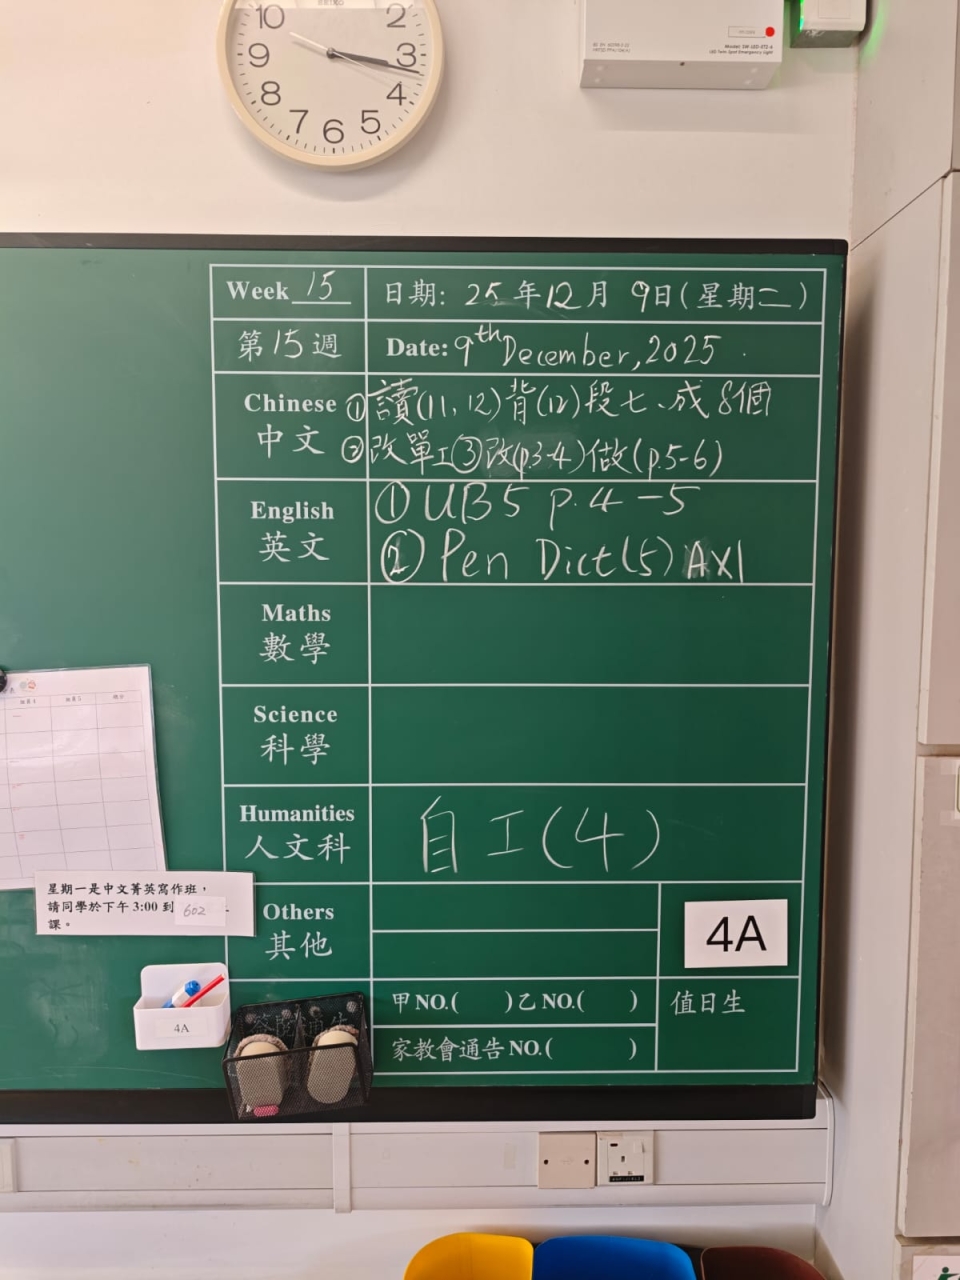 SEIKO
10 2
9 3
8 4
7 6 5
Model: SW-LED-STJ-A
LED Twin Spot Emergency Light
Week 15 日期: 25年12月9日(星期二)
第15週 Date: 9th December, 2025
Chinese 中文
①讀(11, 12)背(12)段七、成8個
②改單工③改(p.3-4)做(p.5-6)
English 英文
① UB5 p.4-5
② Pen Dict(5) AX1
Maths
數學
Science
科學
Humanities 人文科
自工(4)
星期一是中文菁英寫作班，
請同學於下午 3:00 到 602
課。
Others
其他
4A
甲 NO.( ) 乙 NO.( ) 值日生
家教會通告 NO.( )
4A